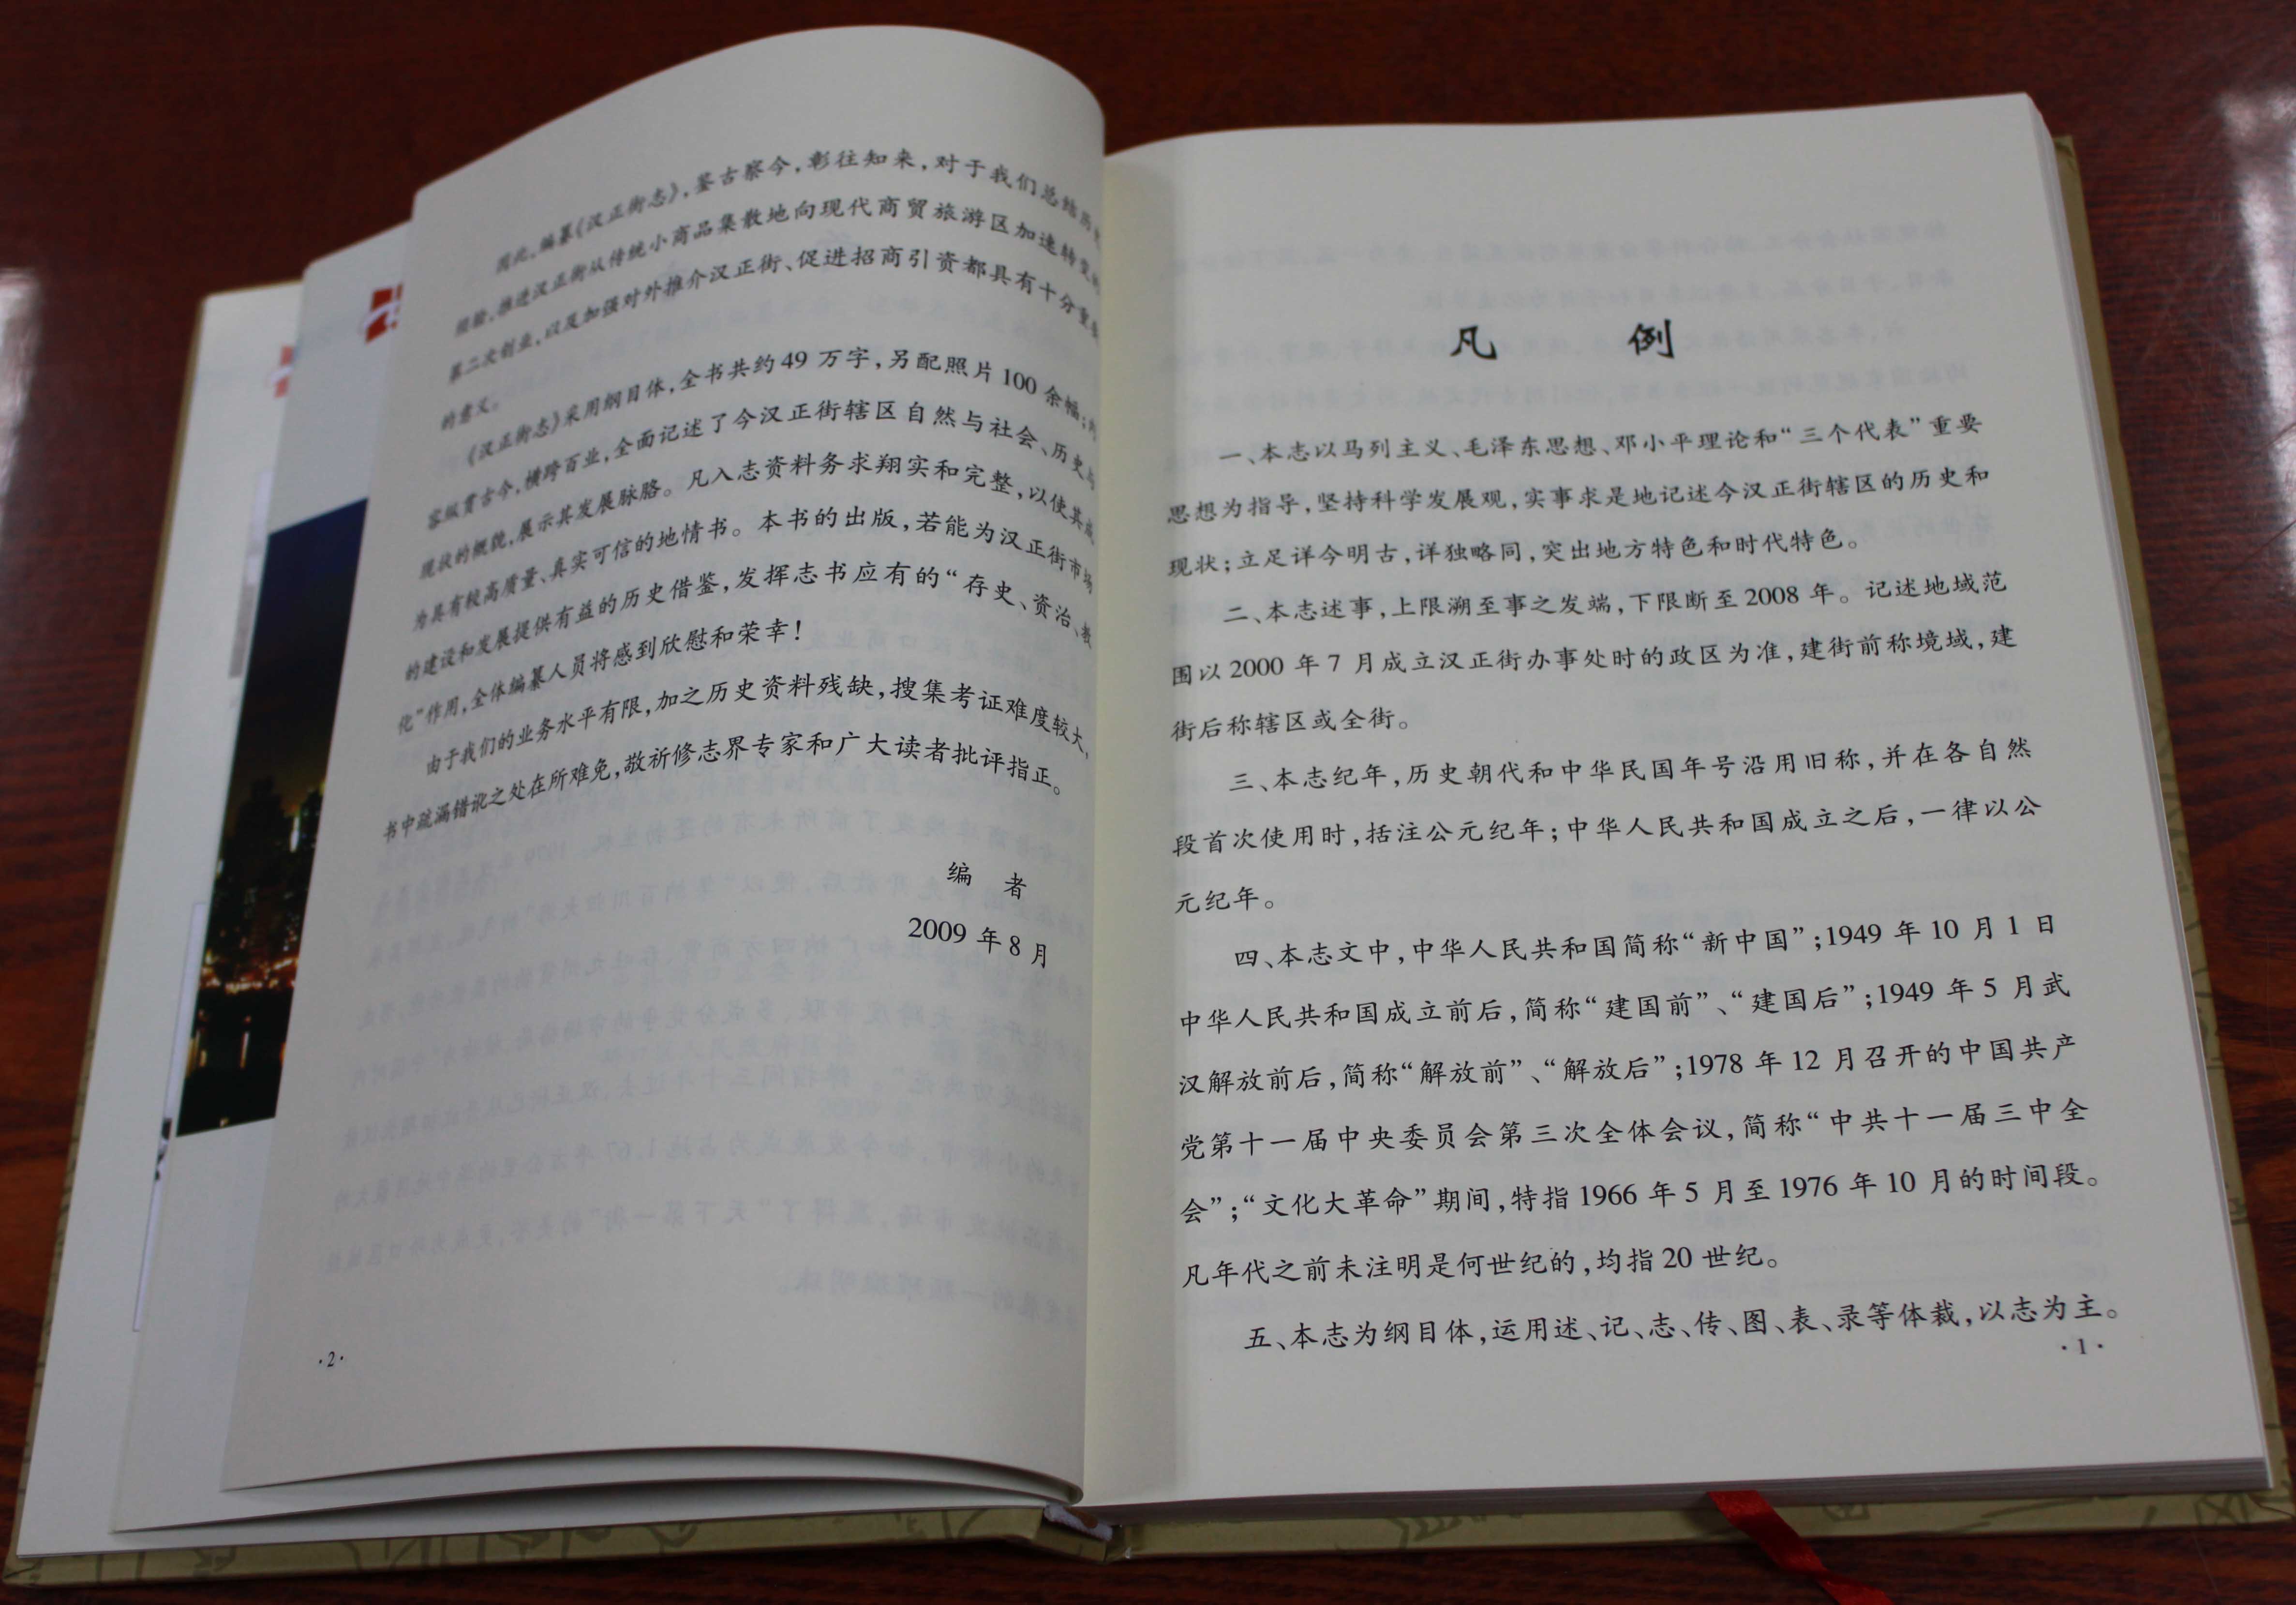 因此，编纂《汉正街志》，鉴古察今，彰往知来，对于我们总结历史
经验，推进汉正街从传统小商品集散地向现代商贸旅游区加速转变的
第二次创业，以及加强对外推介汉正街、促进招商引资都具有十分重要
的意义。
《汉正街志》采用纲目体，全书共约49万字，另配照片100余幅；内
容纵贯古今，横跨百业，全面记述了今汉正街辖区自然与社会、历史与
现状的概貌，展示其发展脉胳。凡入志资料务求翔实和完整，以使其成
为具有较高质量、真实可信的地情书。本书的出版，若能为汉正街市场
的建设和发展提供有益的历史借鉴，发挥志书应有的“存史、资治、教
化”作用，全体编纂人员将感到欣慰和荣幸！
由于我们的业务水平有限，加之历史资料残缺，搜集考证难度较大，
书中疏漏错讹之处在所难免，敬祈修志界专家和广大读者批评指正。
编 者
2009年8月
·2·
凡 例
一、本志以马列主义、毛泽东思想、邓小平理论和“三个代表”重要
思想为指导，坚持科学发展观，实事求是地记述今汉正街辖区的历史和
现状；立足详今明古，详独略同，突出地方特色和时代特色。
二、本志述事，上限溯至事之发端，下限断至2008年。记述地域范
围以2000年7月成立汉正街办事处时的政区为准，建街前称境域，建
街后称辖区或全街。
三、本志纪年，历史朝代和中华民国年号沿用旧称，并在各自然
段首次使用时，括注公元纪年；中华人民共和国成立之后，一律以公
元纪年。
四、本志文中，中华人民共和国简称“新中国”；1949年10月1日
中华人民共和国成立前后，简称“建国前”、“建国后”；1949年5月武
汉解放前后，简称“解放前”、“解放后”；1978年12月召开的中国共产
党第十一届中央委员会第三次全体会议，简称“中共十一届三中全
会”；“文化大革命”期间，特指1966年5月至1976年10月的时间段。
凡年代之前未注明是何世纪的，均指20世纪。
五、本志为纲目体，运用述、记、志、传、图、表、录等体裁，以志为主。
·1·